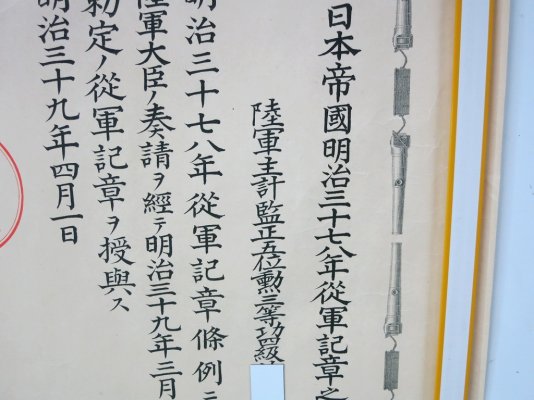 日本帝國明治三十七八年從軍記章之
陸軍主計監正五位勲三等功四級
明治三十七八年從軍記章條例ニ
陸軍大臣ノ奏請ヲ經テ明治三十九年三月
勅定ノ從軍記章ヲ授與ス
明治三十九年四月一日